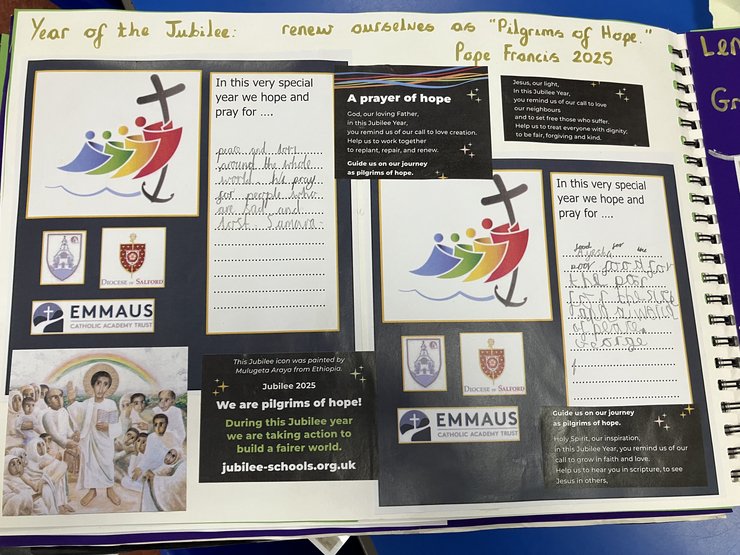 Year of the Jubilee: renew ourselves as "Pilgrims of Hope."
Pope Francis 2025
In this very special
year we hope and
pray for ....
peace and love
around the whole
world. We pray
for people who
are sad and
lost Samara.
DIOCESE OF SALFORD
EMMAUS
CATHOLIC ACADEMY TRUST
This Jubilee icon was painted by
Mulugeta Araya from Ethiopia.
Jubilee 2025
We are pilgrims of hope!
During this Jubilee year
we are taking action to
build a fairer world.
jubilee-schools.org.uk
A prayer of hope
God, our loving Father,
in this Jubilee Year,
you remind us of our call to love creation.
Help us to work together
to replant, repair, and renew.
Guide us on our journey
as pilgrims of hope.
Jesus, our light,
in this Jubilee Year,
you remind us of our call to love
our neighbours
and to set free those who suffer.
Help us to treat everyone with dignity;
to be fair, forgiving and kind.
In this very special
year we hope and
pray for ....
food for the
poor food for
the poor
for the
and a world
of peace
George
DIOCESE OF SALFORD
EMMAUS
CATHOLIC ACADEMY TRUST
Guide us on our journey
as pilgrims of hope.
Holy Spirit, our inspiration,
in this Jubilee Year, you remind us of our
call to grow in faith and love.
Help us to hear you in scripture, to see
Jesus in others,